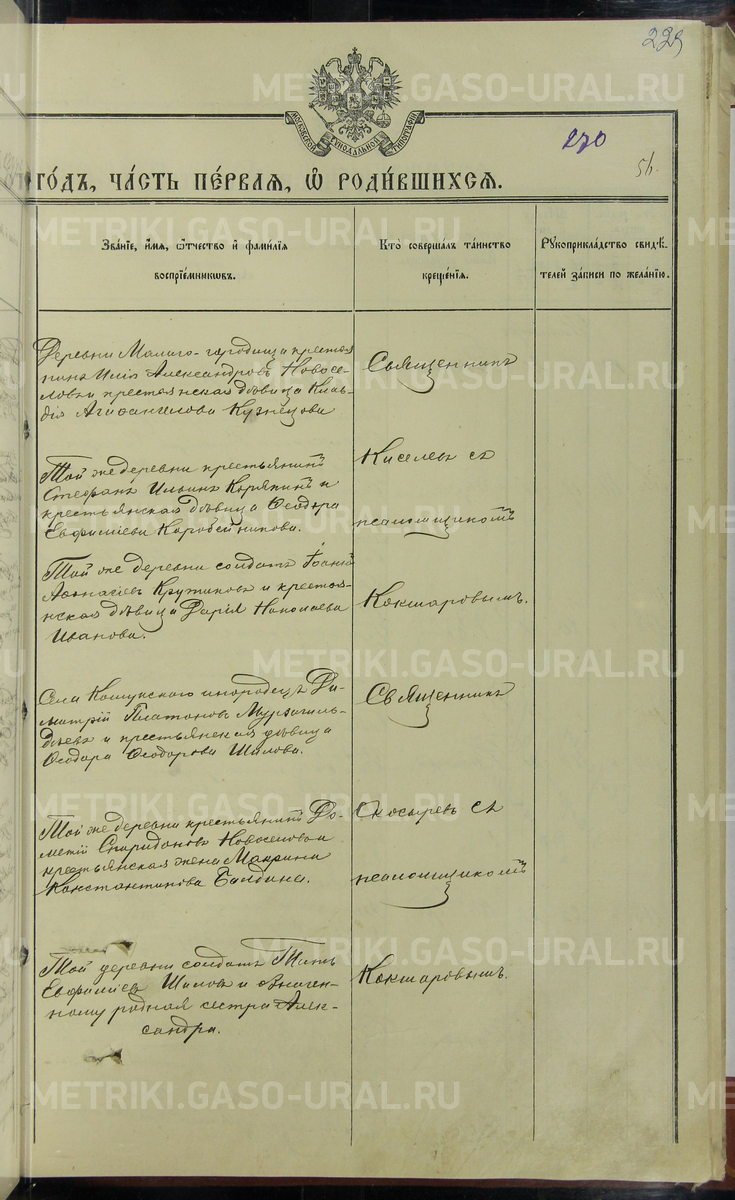 229
METRIKI.GASO-URAL.RU
МОСКОВСКОЙ СѴНОДАЛЬНОЙ ТИПОГРАФІИ
270
56.
ГО́ДЪ, ЧА́СТЬ ПЕ́РВАЯ, Ѡ҆ РОДИ́ВШИХСЯ.
Зва́нїе, и҆́мя, ѻ҆́тчество и҆ фами́лїя
воспрїе́мникѡвъ.
Кто̀ соверша́лъ та́инство
креще́нїя.
Рꙋкоприкла́дство свидѣ́-
телей за́писи по жела́нїю.
Деревни Малаго-городища крестья
нинъ Илія Александровъ Новосе-
ловъ и крестьянская дѣвица Клав-
дія Агафангелова Кузнецова
Священникъ
Той же деревни крестьянинъ
Стефанъ Ильинъ Корякинъ и
крестьянская дѣвица Ѳеодора
Евфиміева Коробейникова.
Киселевъ съ
псаломщикомъ
Той же деревни солдатъ Іоаннъ
Аѳанасіевъ Крутиковъ и крестья-
нская дѣвица Дарія Николаева
Иванова.
Кокшаровымъ.
Села Кошукскаго инородецъ Ди-
митрій Платоновъ Мурзагиль-
дѣевъ и крестьянская дѣвица
Ѳеодора Ѳеодорова Шилова.
Священникъ
Той же деревни крестьянинъ До-
метій Спиридоновъ Новоселовъ и
крестьянская жена Макрина
Константинова Балдина.
Окосыревъ съ
псаломщикомъ
Той деревни солдатъ Титъ
Евфиміевъ Шиловъ и означен-
ному родная сестра Алек-
сандра.
Кокшаровымъ.